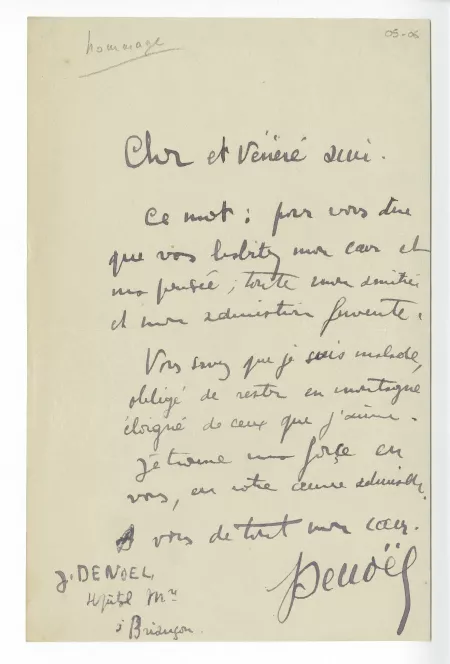 hommage
05-06
Cher et Vénéré ami.
Ce mot : pour vous dire
que vous habitez mon cœur et
ma pensée ; toute mon amitié
et mon admiration fervente.
Vous savez que je suis malade,
obligé de rester en montagne
éloigné de ceux que j'aime.
Je trouve ma force en
vous, en votre œuvre admirable.
A vous de tout mon cœur.
Denoël
J. DENOEL
Hôpital Mre
à Briançon.